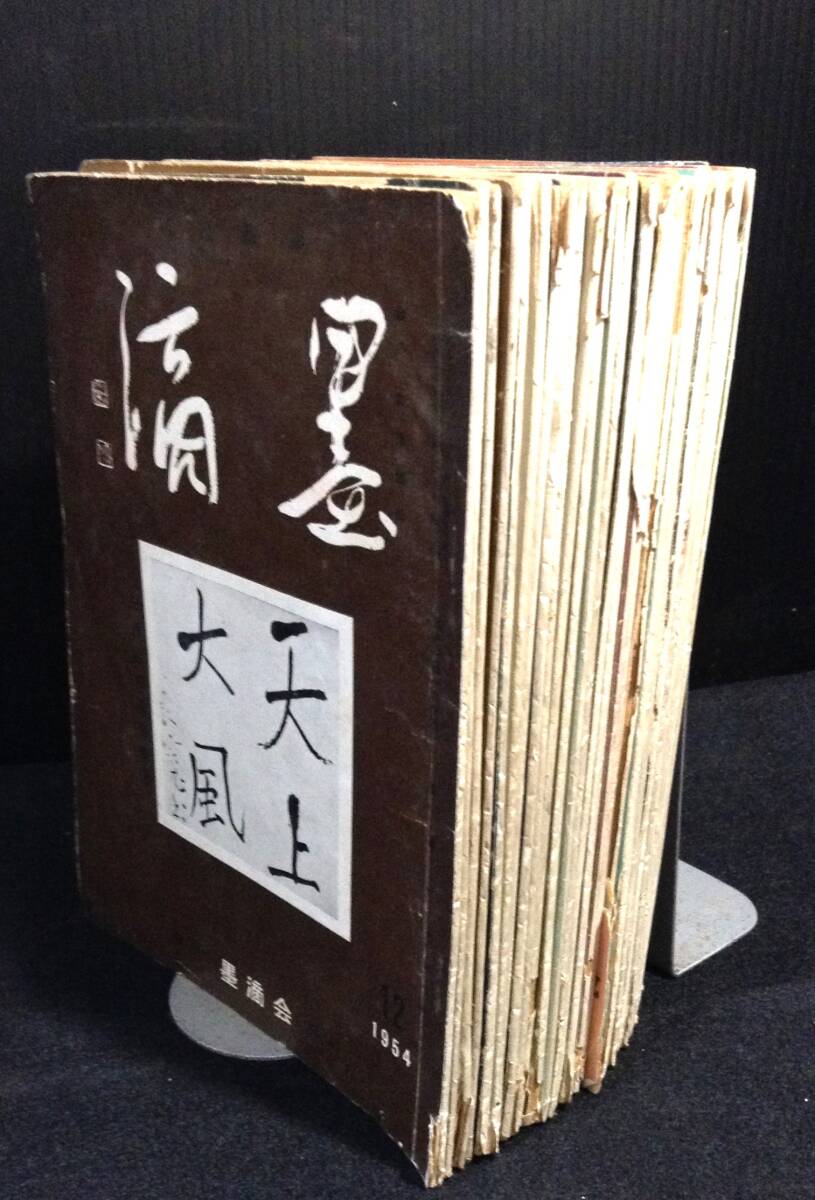 墨滴
天上
大風
墨滴会
12
1954